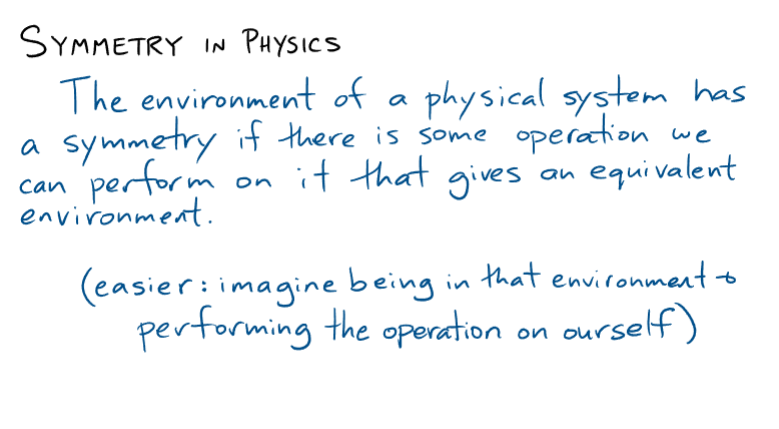 SYMMETRY IN PHYSICS
The environment of a physical system has
a symmetry if there is some operation we
can perform on it that gives an equivalent
environment.
(easier: imagine being in that environment +
performing the operation on ourself)